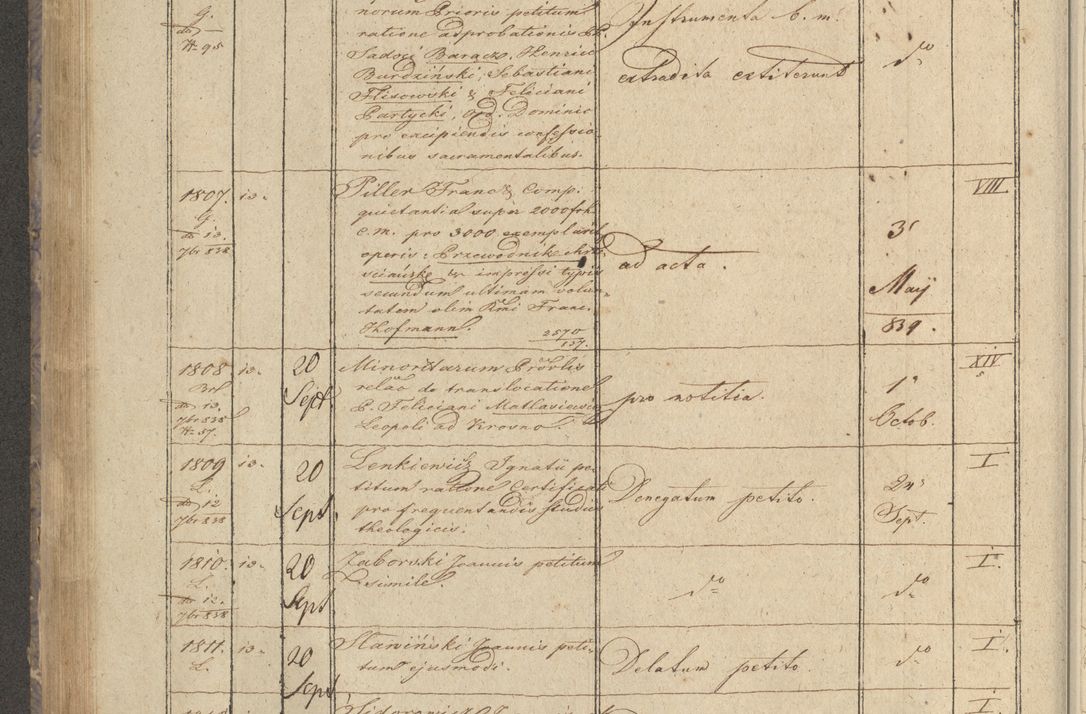 norum Prioris petitum
ratione adprobationis PP.
Sadoci Baracz, Henrici
Burdziński, Sebastiani
Flisowski & Feliciani
Partycki, Ord. Dominic
pro excipiendis confessio
nibus sacramentalibus.
Instrumenta b. m.
extradita extiterunt
do
G.
No 95
1807.
G.
do 13.
7br 838
13.
Piller Franc & Comp.
quietantia super 2000 frh
c. m. pro 3000 exemplarib
operis: Przewodnik chrze
sciański & impressi typis
secundum ultimam volun
tatem olim Rmi Franc.
Hofmann.
2570
157.
ad acta.
3
Maij
839.
VIII
1808
do 13.
7br 838
No 57.
13.
20
Sept.
Minoritarum Provlis
relao de translocatione
P. Feliciani Matlasiewicz
Leopoli ad Krosno.
pro notitia.
1
Octob.
XIV
5
1809
L.
do 12
7br 838
13.
20
Sept.
Lenkiewicz Ignatii pe
titum ratione Certificati
pro frequentandis studiis
theologicis.
Denegatum petito.
24
Sept.
I
1810.
L.
do 12.
7br 838
13.
20
Sept
Zaborski Joannis petitum
simile.
do
do
I
1811.
L.
13.
20
Sept
Slawiński Joannis peti
tum ejusmodi.
Delatum petito.
do
I.
I.